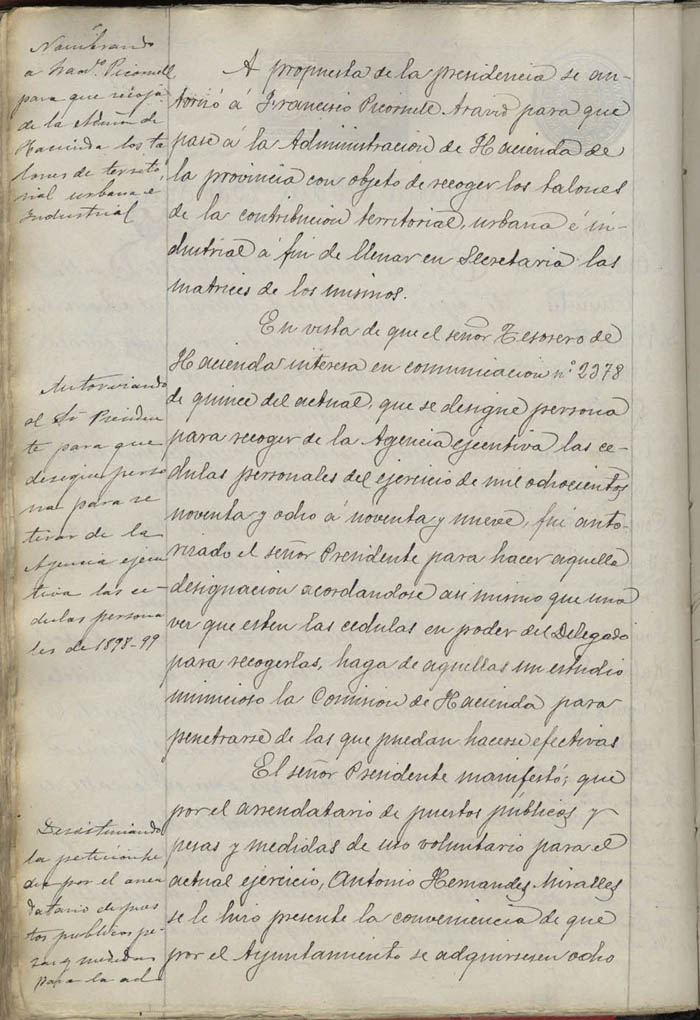 Nombrando
a Franco. Picornell
para que recoja
de la Admon de
Hacienda los ta
lones de territo
rial urbana e
Industrial
A propuesta de la presidencia se au-
torizó á Francisco Picornell Aravid para que
pase á la Administracion de Hacienda de
la provincia con objeto de recoger los talones
de la contribucion territorial, urbana é in-
dustrial a fin de llenar en Secretaria las
matrices de los mismos.
Autorizando
al Sr Presiden
te para que
designe perso
na para re
tirar de la
Agencia ejecu
tiva las ce-
dulas persona
les de 1898-99
En vista de que el señor Tesorero de
Hacienda interesa en comunicacion nº 2378
de quince del actual, que se designe persona
para recoger de la Agencia ejecutiva las ce-
dulas personales del ejercicio de mil ochocientos
noventa y ocho á noventa y nueve, fué auto-
rizado el señor Presidente para hacer aquella
designacion acordandose asi mismo que una
vez que esten las cedulas en poder del Delegado
para recogerlas, haga de aquellas un estudio
minucioso la Comision de Hacienda para
penetrarse de las que puedan hacerse efectivas
Desestimando
la peticion he
cha por el arren
datario de pues
tos publicos pe-
sas y medidas
para la ad
El señor Presidente manifestó; que
por el arrendatario de puestos públicos y
pesas y medidas de uso voluntario para el
actual ejercicio, Antonio Hernandes Miralles
se le hizo presente la conveniencia de que
por el Ayuntamiento se adquiriesen ocho